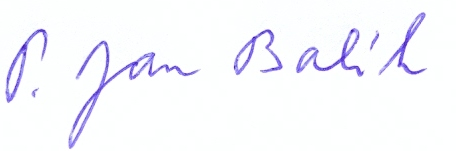 P. Jan Balík